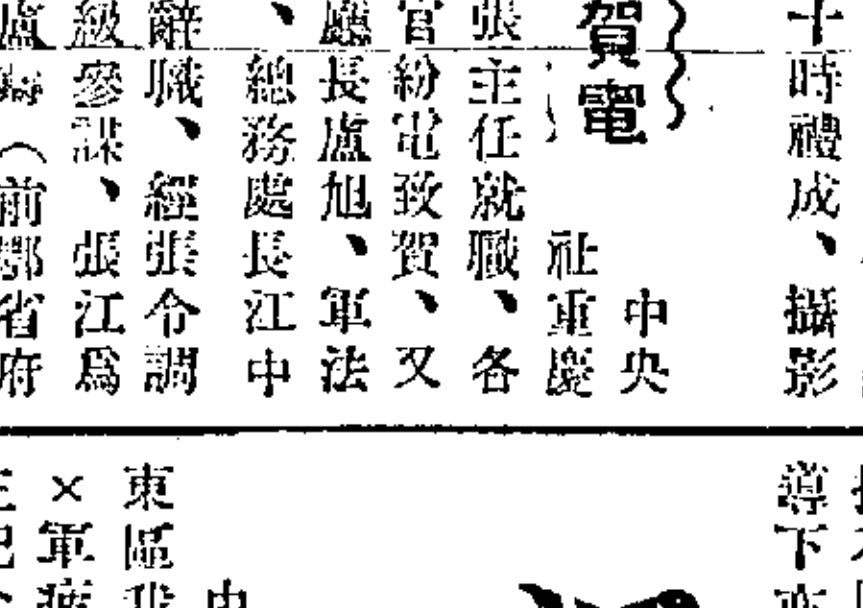 十時禮成、攝影
賀電
中央
社重慶
張主任就職、各
官紛電致賀、又
廳長盧旭、軍法
、總務處長江中
辭職、經張令調
級參謀、張江爲
（前鄂省府
導下
東區我
×軍